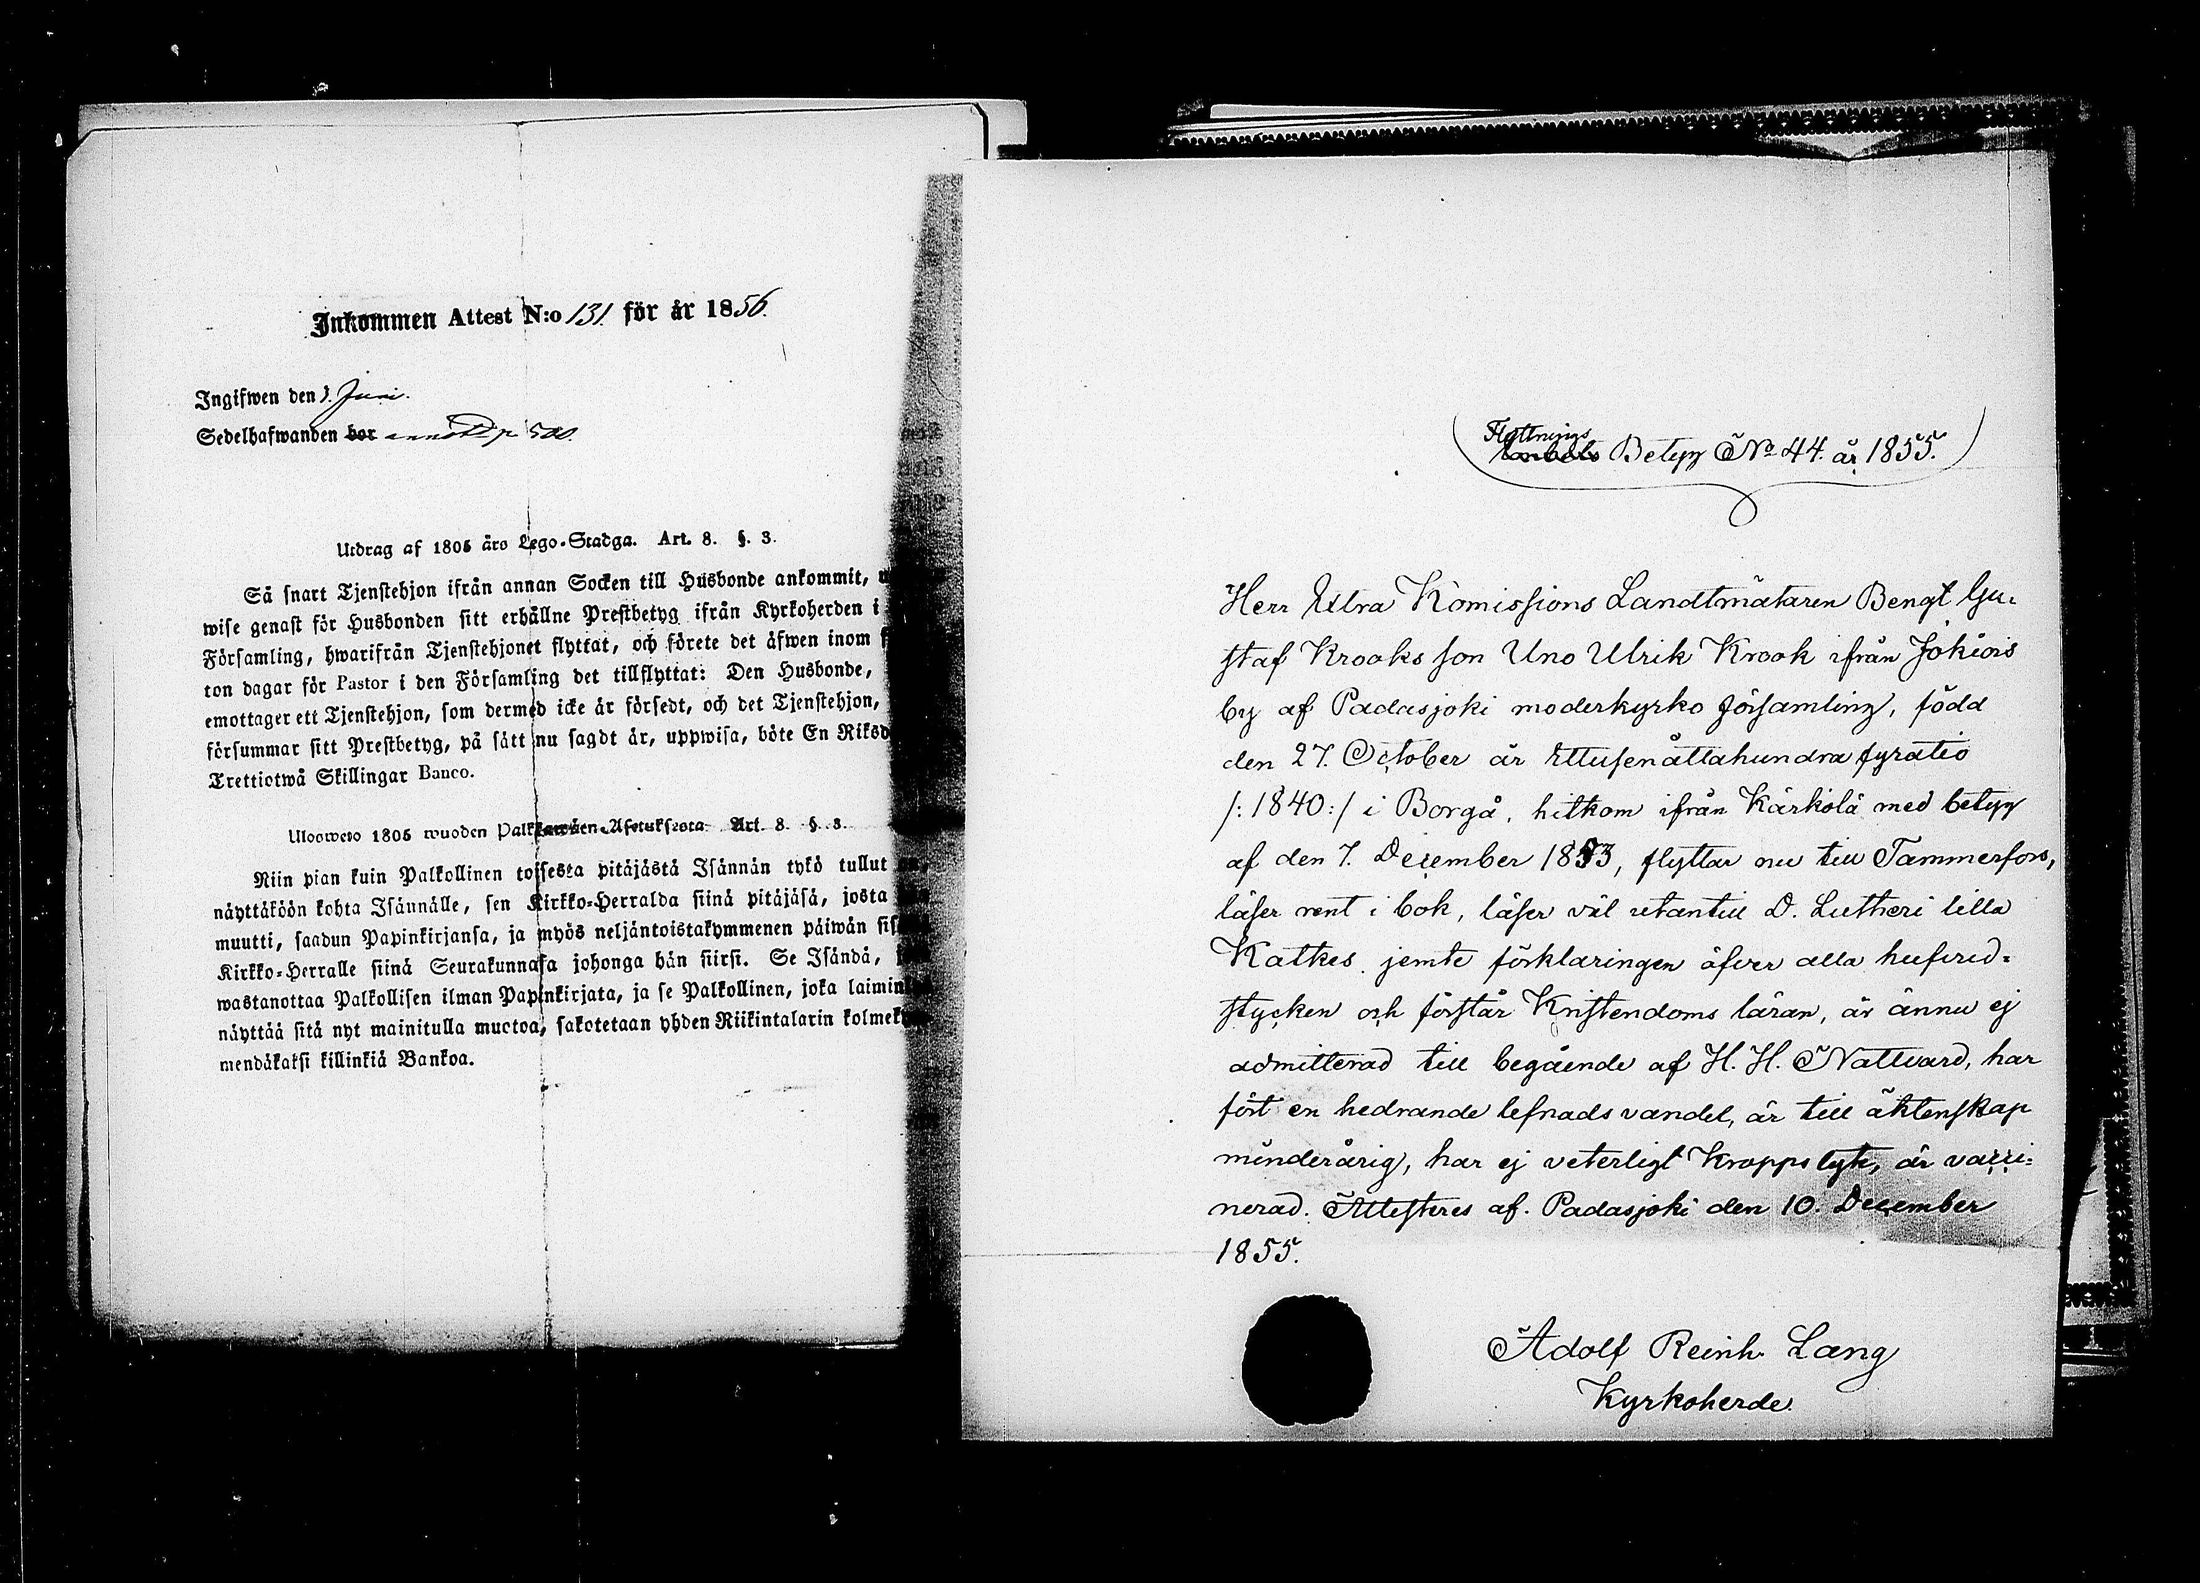 Inkommen Attest N:o 131. för år 1856.
Ingifwen den 3. Juni.
Sedelhafwanden bor
Utdrag af 1805 års Lego-Stadga. Art. 8. §. 3.
Så snart Tjenstehjon ifrån annan Socken till Husbonde ankommit,
wise genast för Husbonden sitt erhållne Prestbetyg ifrån Kyrkoherden i
Församling, hwarifrån Tjenstehjonet flyttat, och förete det äfwen inom
ton dagar för Pastor i den Församling det tillflyttat: Den Husbonde,
emottager ett Tjenstehjon, som dermed icke är försedt, och det Tjenstehjon,
försummar sitt Prestbetyg, på sätt nu sagdt är, uppwisa, böte En Riksd
Trettiotwå Skillingar Banco.
Ulosweto 1805 wuoden Palkkawäen-Asetuksesta Art. 8. §. 3.
Niin pian kuin Palkollinen toisesta pitäjästä Isännän tykö tullut
näyttäköön kohta Isännälle, sen Kirkko-Herralda siinä pitäjäsä, josta
muutti, saadun Papinkirjansa, ja myös neljäntoistakymmenen päiwän sis
Kirkko-Herralle siinä Seurakunnasa johonga hän siirsi. Se Isändä,
wastanottaa Palkollisen ilman Papinkirjata, ja se Palkollinen, joka laimin
näyttää sitä nyt mainitulla muotoa, sakotetaan yhden Riikintalarin kolmek
mendäkaksi killinkiä Bankoa.
Flyttnings
Betyg No 44. år 1855.
Herr Extra Komissions Landtmätaren Bengt Gu-
staf Krooks son Uno Ulrik Krook ifrån Jokiois
by af Padasjoki moderkyrko församling, född
den 27. October år Ettusenåttahundra fyratio
/: 1840:/ i Borgå, hitkom ifrån Kärkölä med betyg
af den 7. December 1853, flyttar nu till Tammerfors,
läser rent i bok, läser väl utantill D. Lutheri lilla
Katkes. jemte förklaringen öfver alla hufvud-
stycken och förstår Kristendoms läran, är ännu ej
admitterad till begående af H. H. Nattvard, har
fört en hedrande lefnads vandel, är till äktenskap
minderårig, har ej veterligt Kropps lyte, är vacci-
nerad. Attesteres af. Padasjoki den 10. December
1855.
Adolf Reinh. Lang
Kyrkoherde.